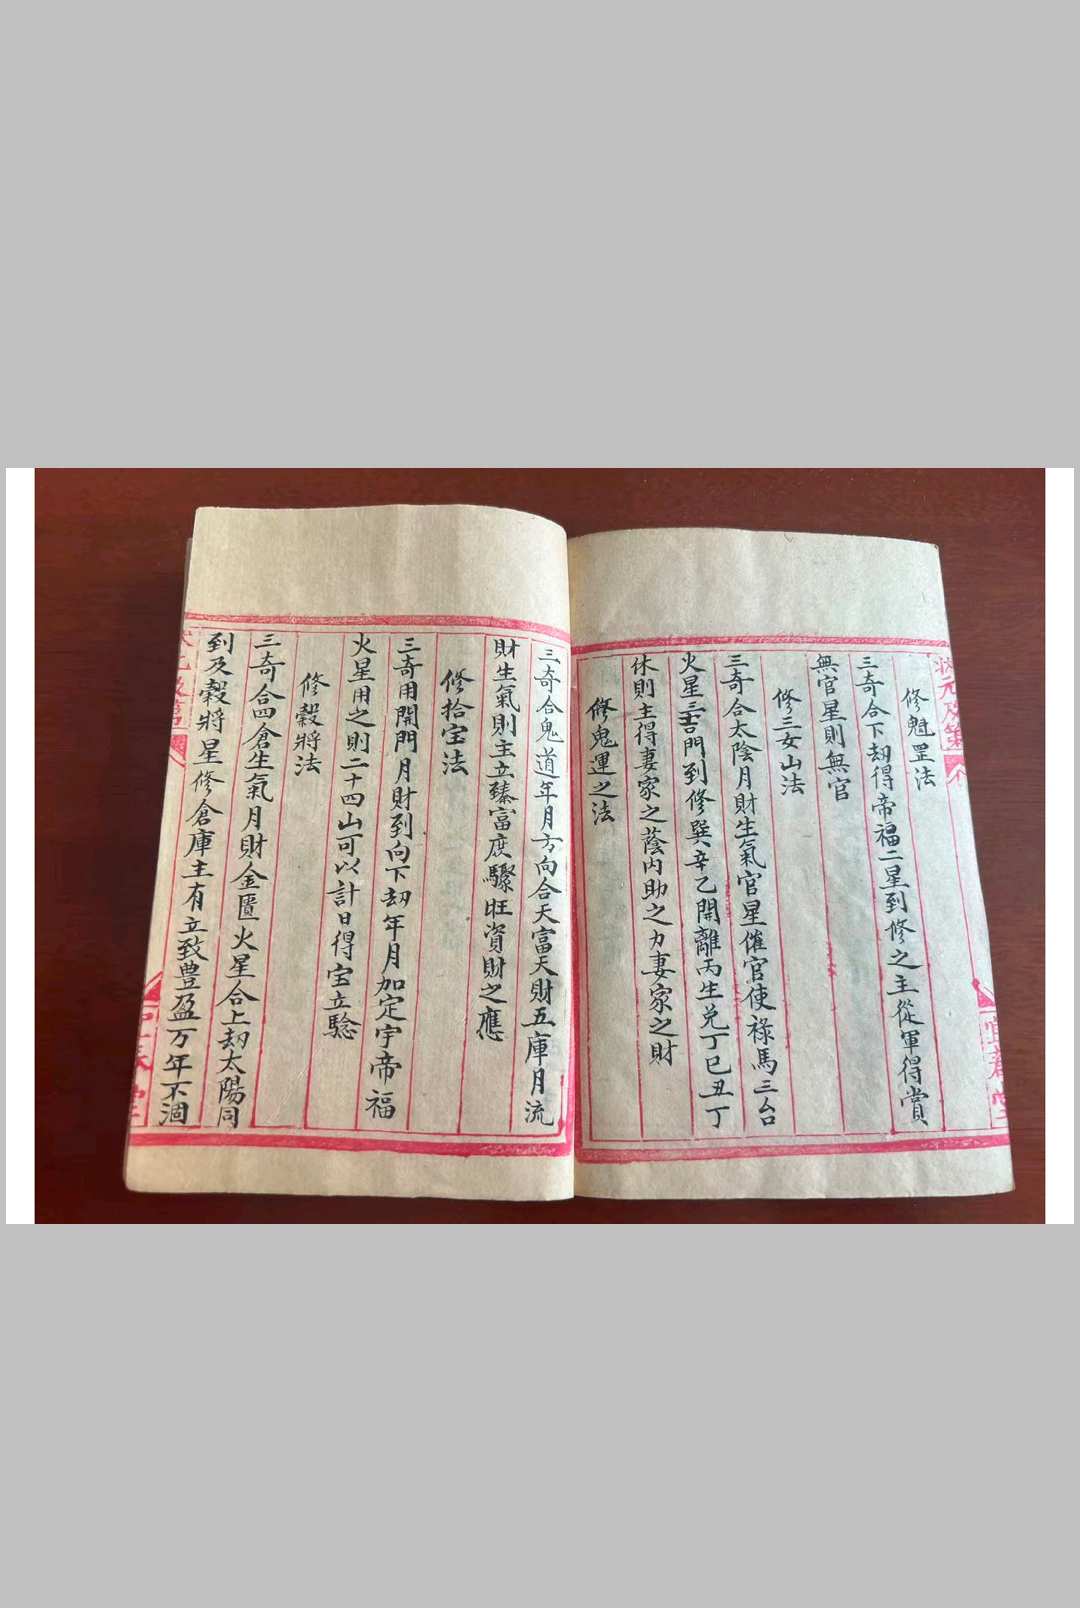 修魁罡法
三奇合下刼得帝福二星到修之主從軍得賞
無官星則無官
修三女山法
三奇合太陰月財生氣官星催官使祿馬三台
火星三吉門到修巽辛乙開離丙生兌丁巳丑丁
休則主得妻家之蔭內助之力妻家之財
修鬼運之法
三奇合鬼道年月方向合天富天財五庫月流
財生氣則主立臻富庶驟旺資財之應
修拾宝法
三奇用開門月財到向下刼年月加定宇帝福
火星用之則二十四山可以計日得宝立騐
修穀將法
三奇合四倉生氣月財金匱火星合上刼太陽同
到及穀將星修倉庫主有立致豊盈万年不涸
状元及第